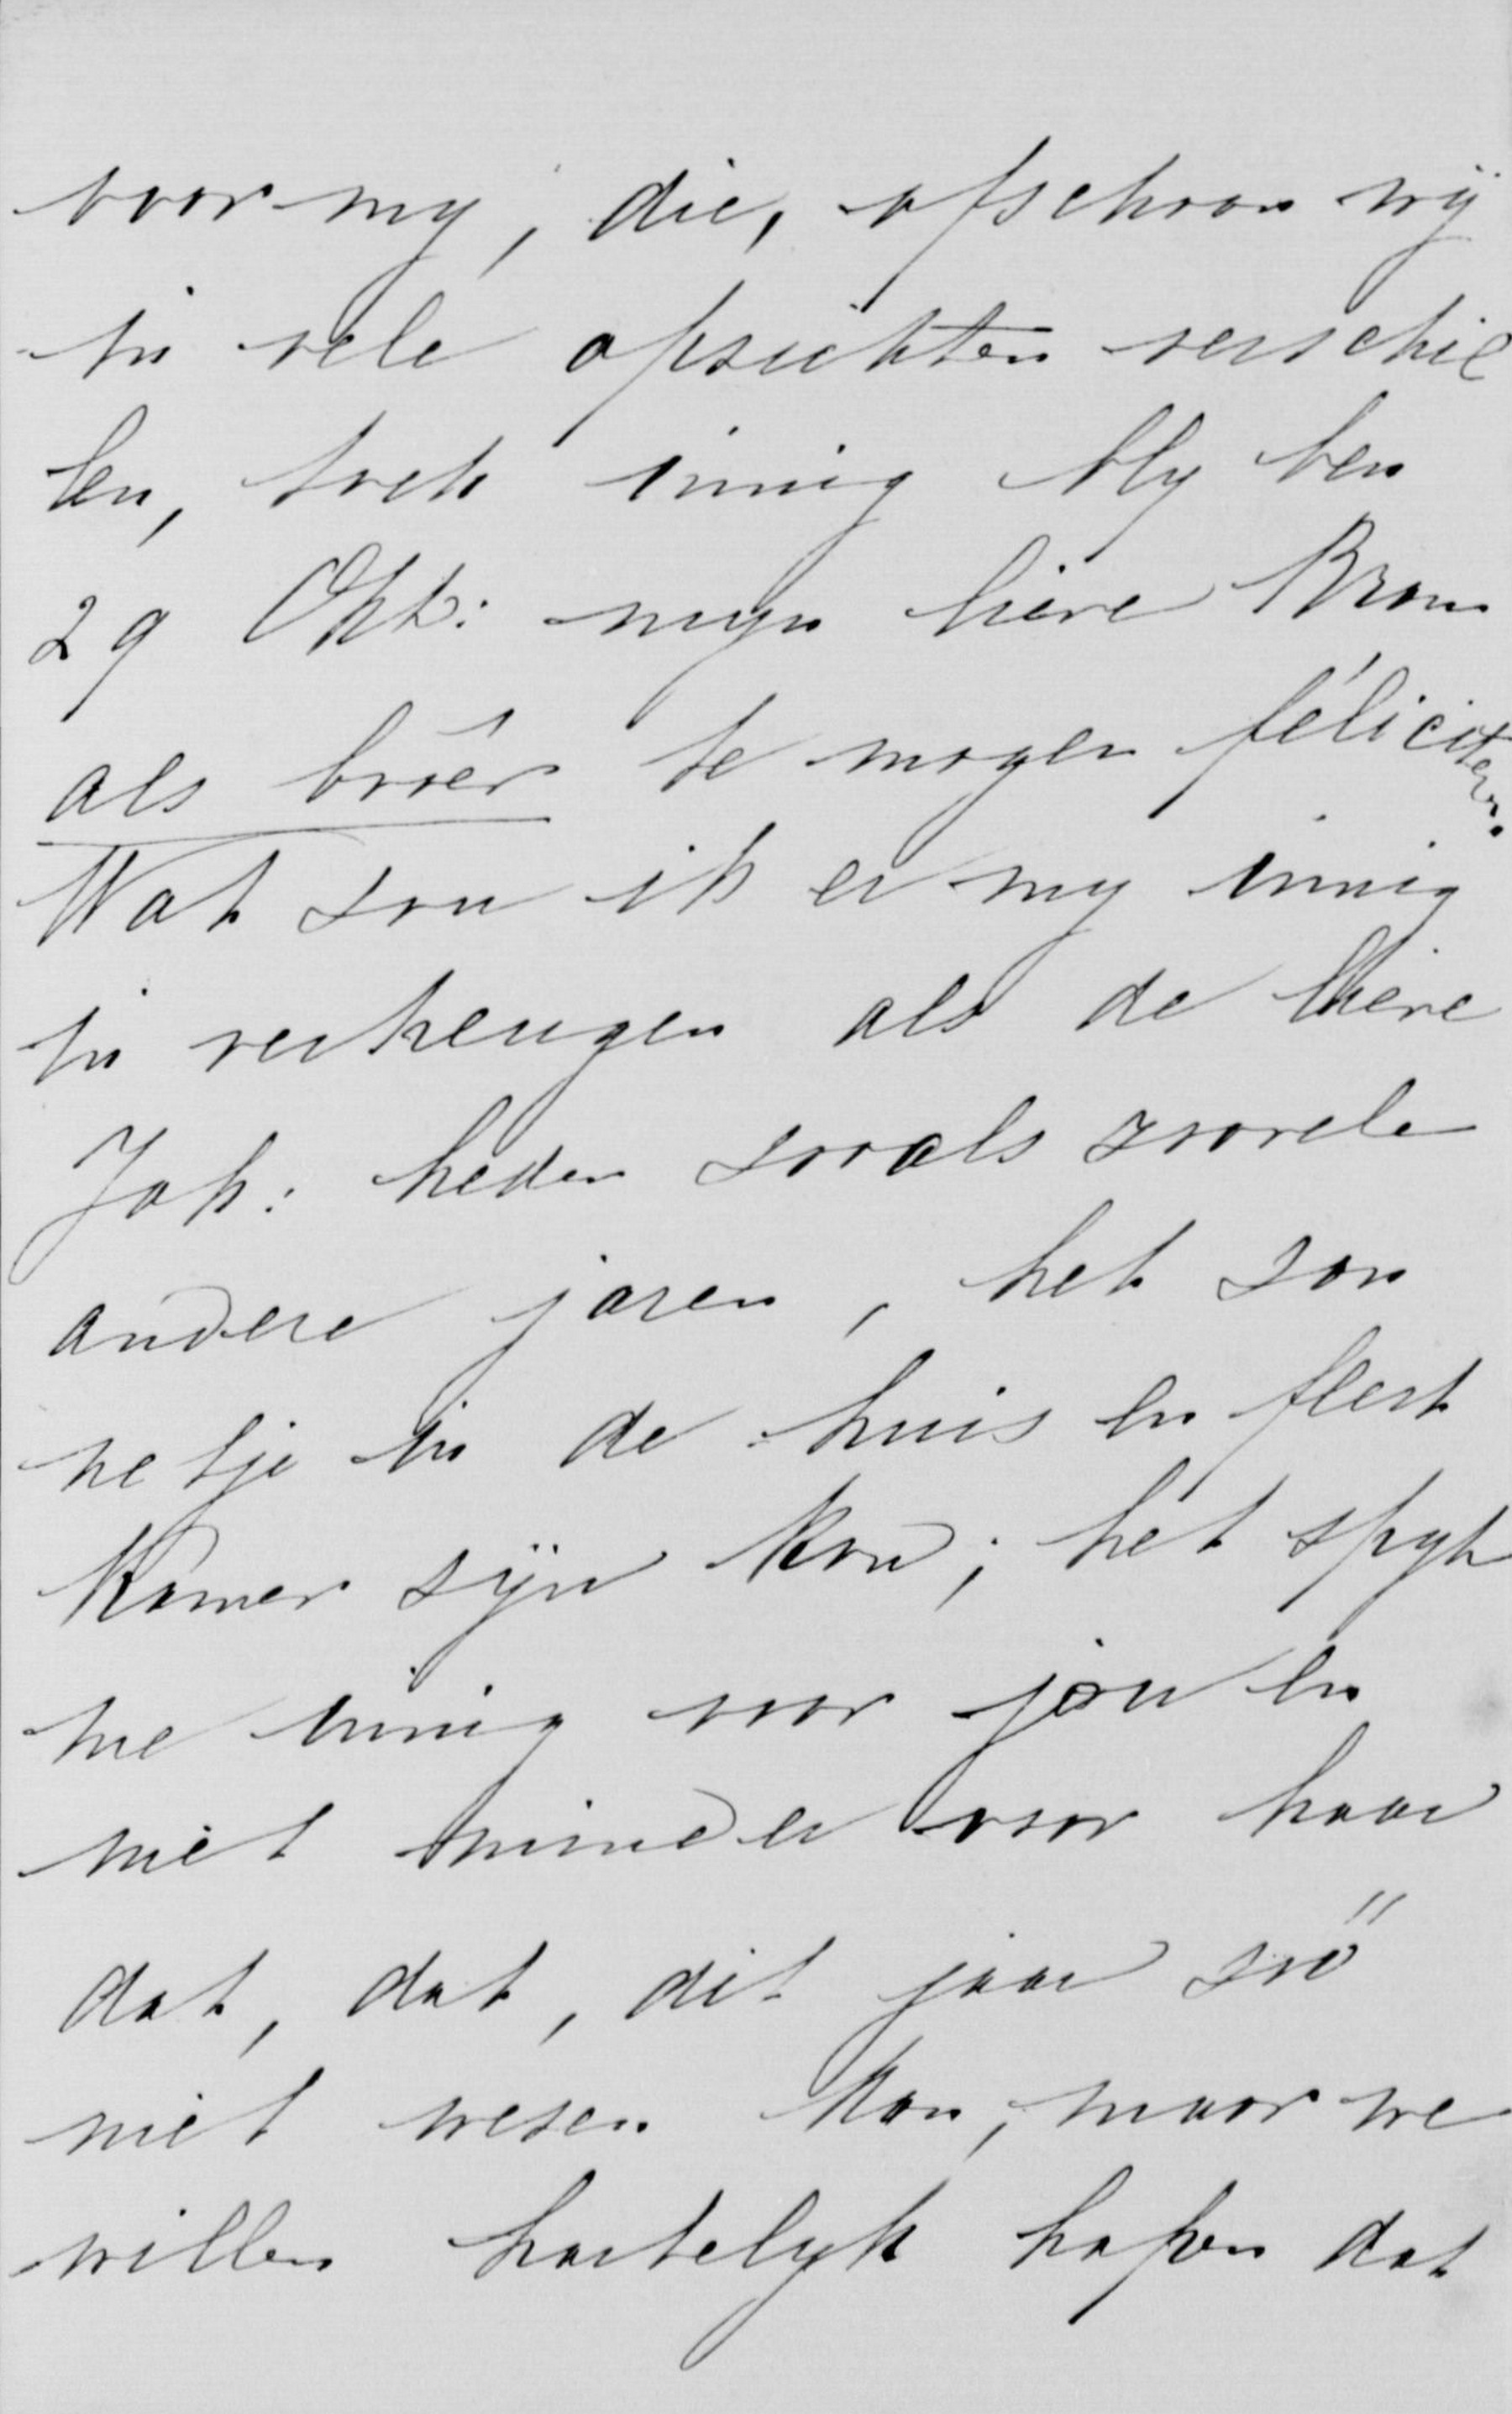 voor my, die, ofschoon wij
in vele opsichten verschil
len, toch innig bly ben
29 Okt: myn lieve Bram
als broêr te mogen féliciteren.
Wat sou ik er my innig
in verheugen als de lieve
Joh: heden sooals soovele
andere jaren, het son
netje in de huis en feest
kamer sijn kon; het spyt
me innig voor jou en
niet minder voor haar
dat, dat, dit jaar soó
niet wesen kan, maar we
willen hartelyk hopen dat